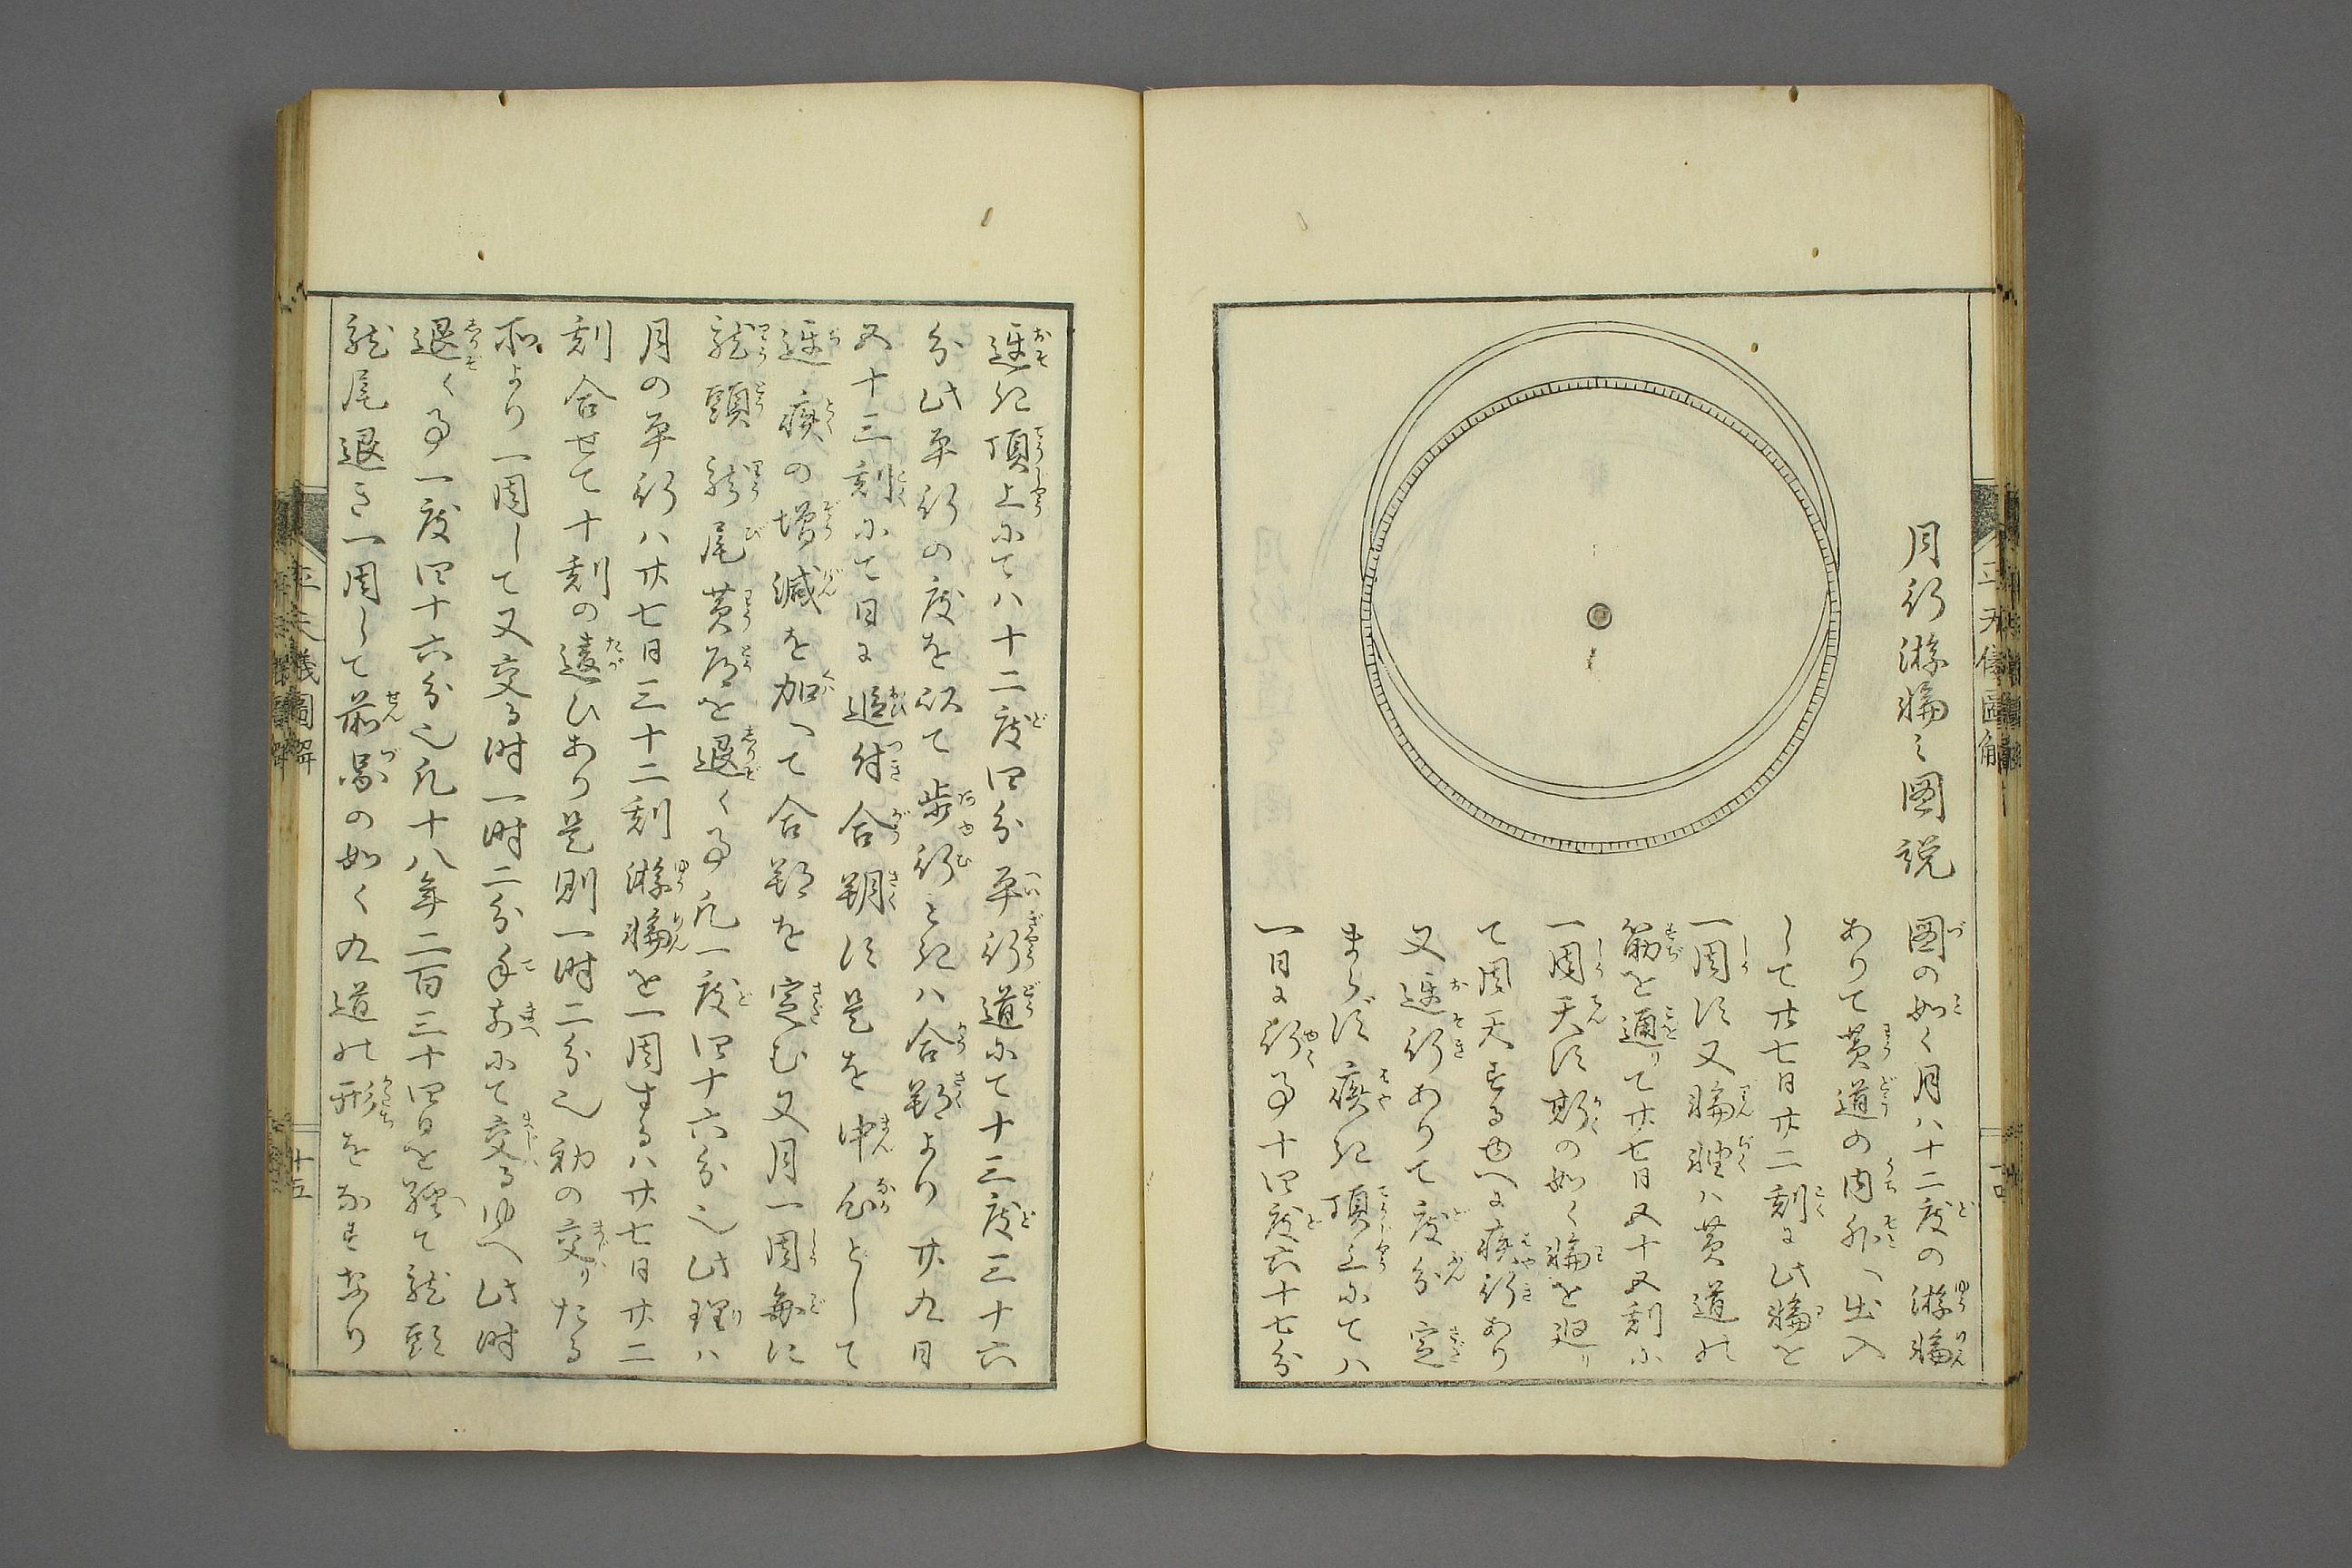 月行游輪之図説
図の如く月ハ十二度の游輪
ありて黄道の内外へ出入
して廿七日廿二刻に此輪を
一周す又輪徑ハ黄道の
筋を通りて廿七日又十又刻に
一周天す斯の如く輪を廻り
て周天するゆへに疾行あり
又遅行ありて度分定
まらず疾き頂上にてハ
一日に行事十四度六十七分
遅き頂上にてハ十二度四分平行道にて十三度三十六
分此平行の度を以て歩行ときハ合朔より廿九日
又十三刻にて日に追付合朔す是を中心として
遅疾の増減を加へて合朔を定む又月一周毎に
龍頭龍尾黄道を退く事凡一度四十六分也此理ハ
月の平行ハ廿七日三十二刻游輪を一周するハ廿七日廿二
刻合せて十刻の違ひあり是則一時二分也初の交りたる
所より一周して又交る時一時二分手前にて交るゆへ此時
退く事一度四十六分也凡十八年二百三十四日を經て龍頭
龍尾退き一周して前図の如く九道の形をなすなり
立天儀図解
十五